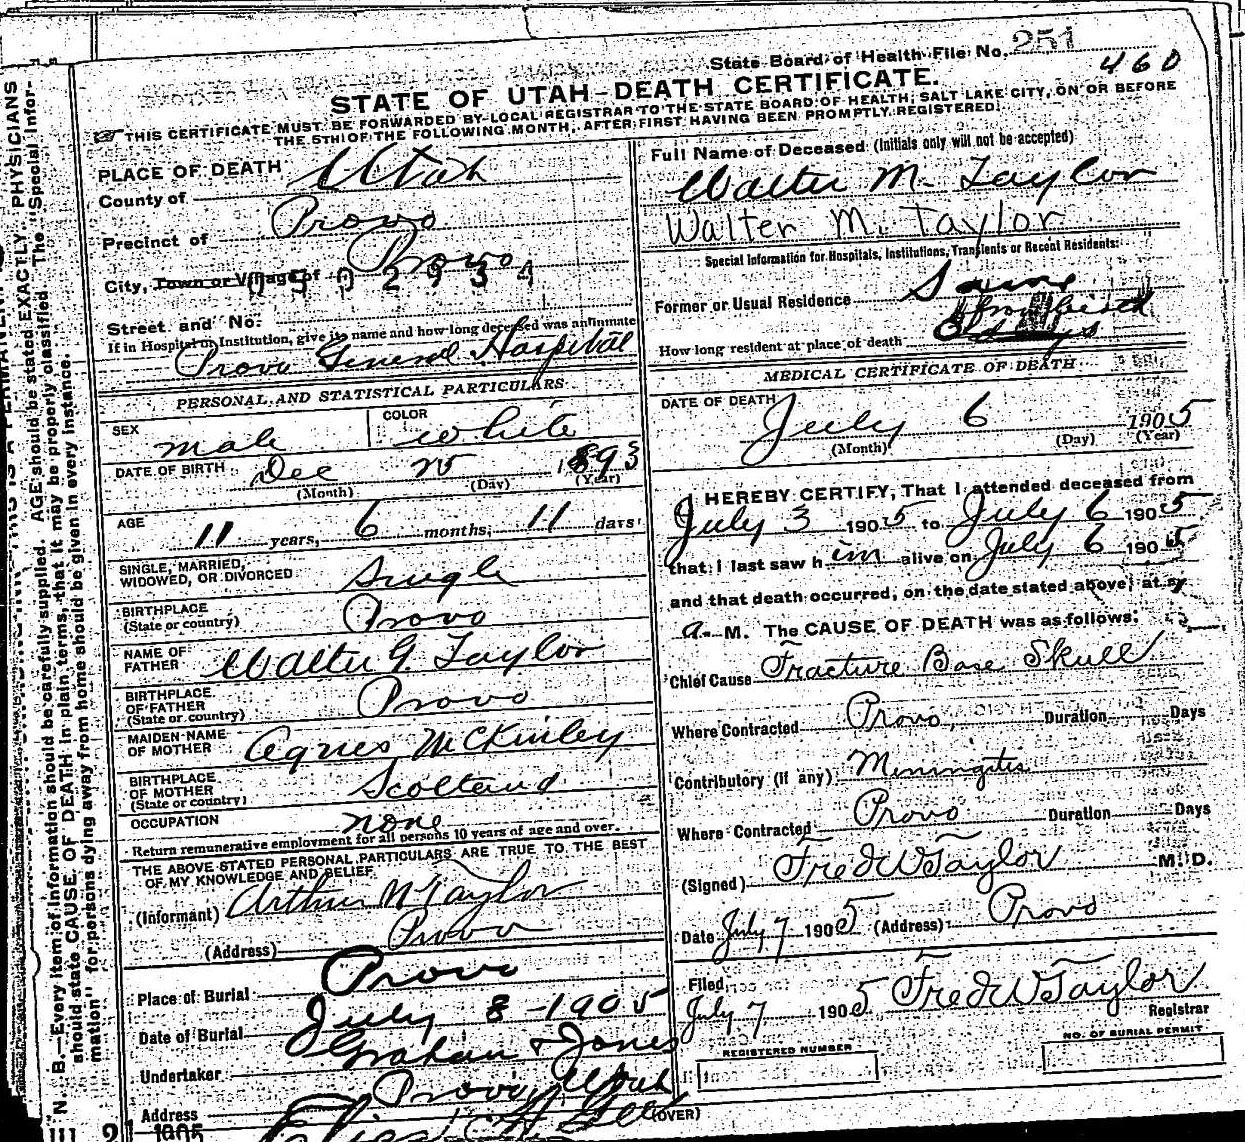 State Board of Health File No. 251
460
STATE OF UTAH—DEATH CERTIFICATE.
THIS CERTIFICATE MUST BE FORWARDED BY LOCAL REGISTRAR TO THE STATE BOARD OF HEALTH, SALT LAKE CITY, ON OR BEFORE
THE 5TH OF THE FOLLOWING MONTH, AFTER FIRST HAVING BEEN PROMPTLY REGISTERED.
PLACE OF DEATH
County of Utah
Precinct of Provo
City, Town or Village of Provo
0502934
Street and No.
If in Hospital or Institution, give its name and how long deceased was an inmate
Provo General Hospital
PERSONAL AND STATISTICAL PARTICULARS
SEX male COLOR white
DATE OF BIRTH Dec 25 1893
(Month) (Day) (Year)
AGE 11 years, 6 months, 11 days
SINGLE, MARRIED,
WIDOWED, OR DIVORCED Single
BIRTHPLACE
(State or country) Provo
NAME OF
FATHER Walter G. Taylor
BIRTHPLACE
OF FATHER
(State or country) Provo
MAIDEN NAME
OF MOTHER Agnes McKinley
BIRTHPLACE
OF MOTHER
(State or country) Scotland
OCCUPATION none
Return remunerative employment for all persons 10 years of age and over.
THE ABOVE STATED PERSONAL PARTICULARS ARE TRUE TO THE BEST
OF MY KNOWLEDGE AND BELIEF
(Informant) Arthur N Taylor
(Address) Provo
Place of Burial Provo
Date of Burial July 8-1905
Undertaker Graham & Jones
Address Provo, Utah
(OVER)
1905
Full Name of Deceased (Initials only will not be accepted)
Walter M. Taylor
Walter M. Taylor
Special Information for Hospitals, Institutions, Transients or Recent Residents:
Former or Usual Residence Same
How long resident at place of death
MEDICAL CERTIFICATE OF DEATH
DATE OF DEATH July 6 1905
(Month) (Day) (Year)
I HEREBY CERTIFY, That I attended deceased from
July 3 1905 to July 6 1905
that I last saw him alive on July 6 1905
and that death occurred, on the date stated above, at
a. M. The CAUSE OF DEATH was as follows:
Chief Cause Fracture Base Skull
Where Contracted Provo, Duration Days
Contributory (if any) Meningitis
Where Contracted Provo Duration Days
(Signed) Fred W Taylor M. D.
Date July 7 1905 (Address) Provo
Filed
July 7 1905 Fred W Taylor
Registrar
REGISTERED NUMBER
NO. OF BURIAL PERMIT
N. B.—Every item of information should be carefully supplied. AGE should be stated EXACTLY. PHYSICIANS
should state CAUSE OF DEATH in plain terms, that it may be properly classified. The "Special Infor-
mation" for persons dying away from home should be given in every instance.